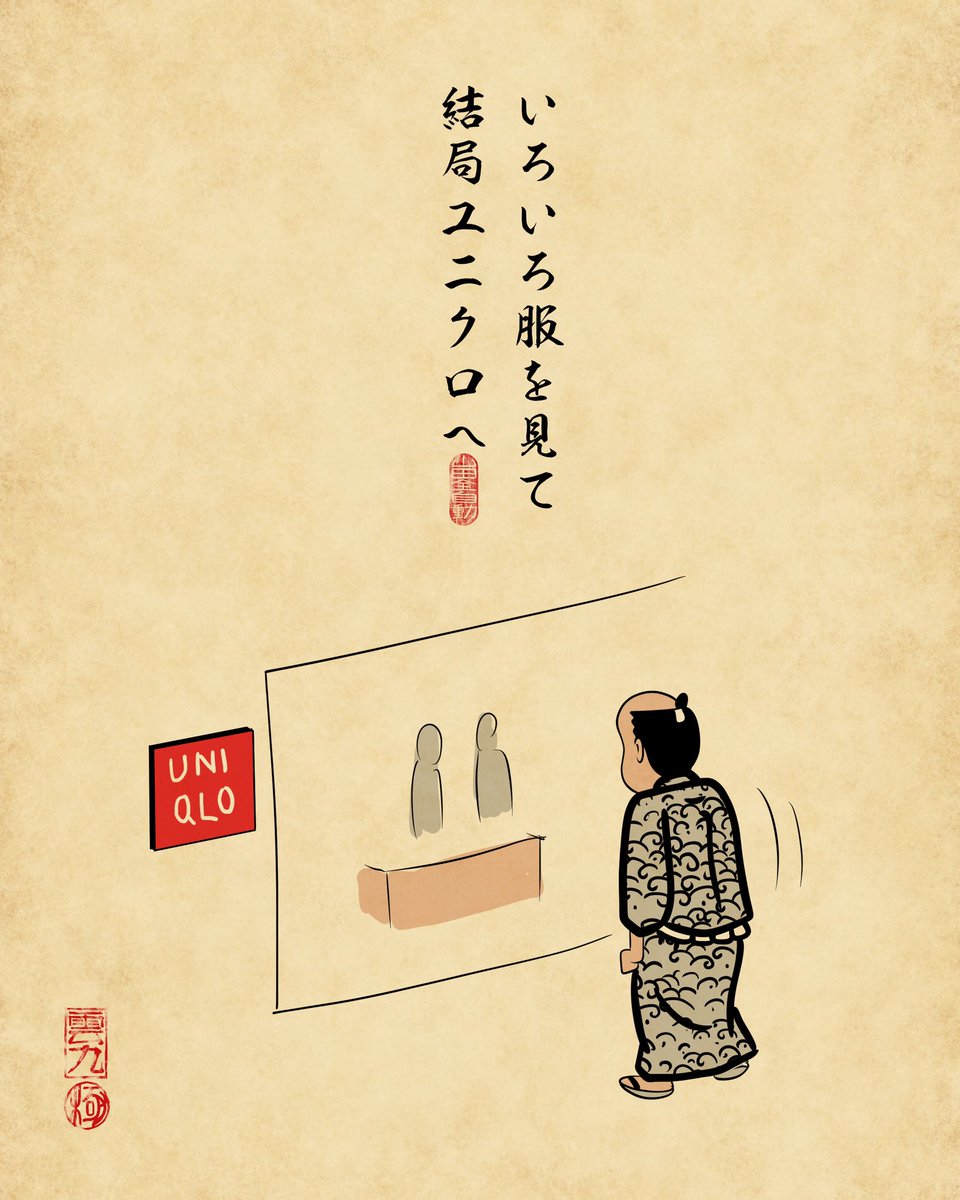 いろいろ服を見て
結局ユニクロへ
UNI
QLO